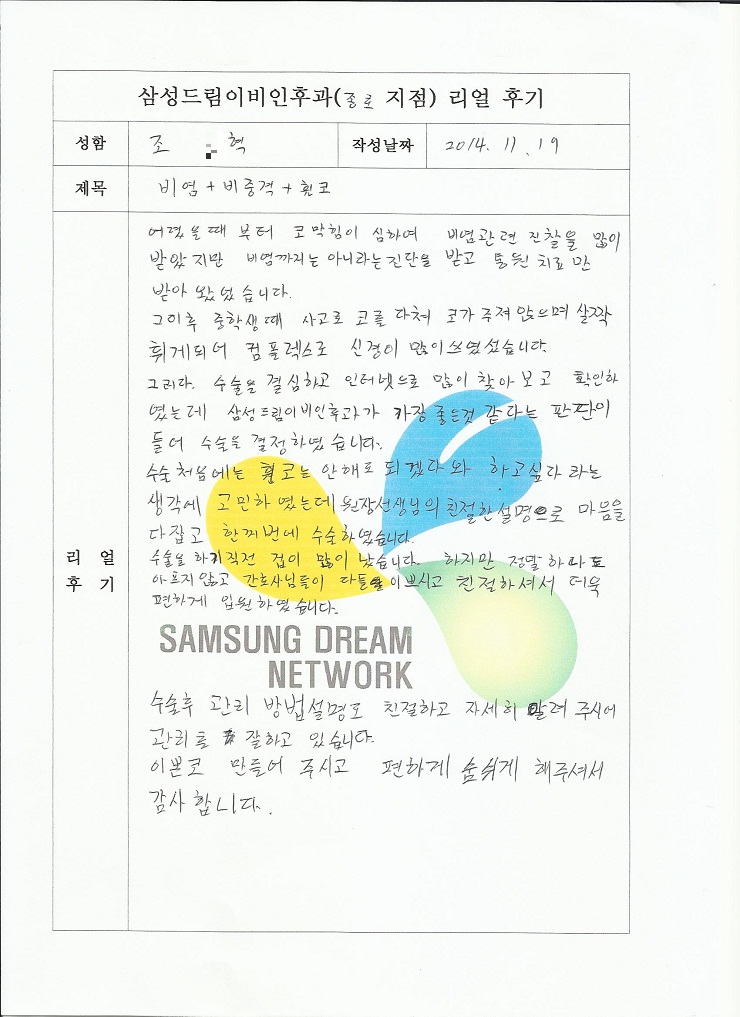 삼성드림이비인후과(종로 지점) 리얼 후기
성함 조 혁 작성날짜 2014. 11. 19
제목 비염 + 비중격 + 휜코
어렸을때 부터 코막힘이 심하여 비염관련 진찰을 많이
받았지만 비염까지는 아니라는 진단을 받고 통원치료만
받아 왔었습니다.
그이후 중학생때 사고로 코를 다쳐 코가 주저 앉으며 살짝
휘게되어 컴플렉스로 신경이 많이쓰였었습니다.
그러다. 수술을 결심하고 인터넷으로 많이 찾아보고 확인하
였는데 삼성드림이비인후과가 가장 좋은것 같다는 판단이
들어 수술을 결정하였습니다.
수술처음에는 휜코는 안해도 되겠다와 하고싶다 라는
생각에 고민하였는데 원장선생님의 친절한설명으로 마음을
다잡고 한꺼번에 수술하였습니다.
리얼 후기
수술을 하기직전 겁이 많이 났습니다. 하지만 정말 하나도
아프지않고 간호사님들이 다들 이쁘시고 친절하셔서 더욱
편하게 입원하였습니다.
SAMSUNG DREAM
NETWORK
수술후 관리 방법설명도 친절하고 자세히 알려 주시어
관리를 잘하고 있습니다.
이쁜코 만들어 주시고 편하게 숨쉬게 해주셔서
감사합니다.